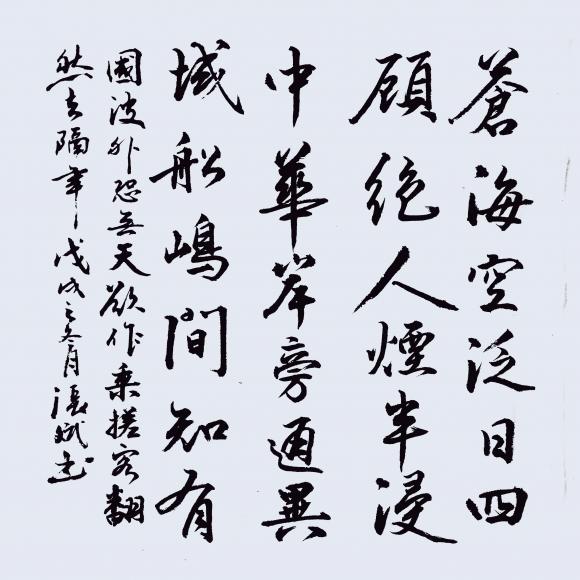 蒼海空泛日四
顧絕人煙半浸
中華岸旁通異
域船嶋間知有
國波外恐無天欲作乘搓客翻
然去隔年戊戌之冬月張斌书